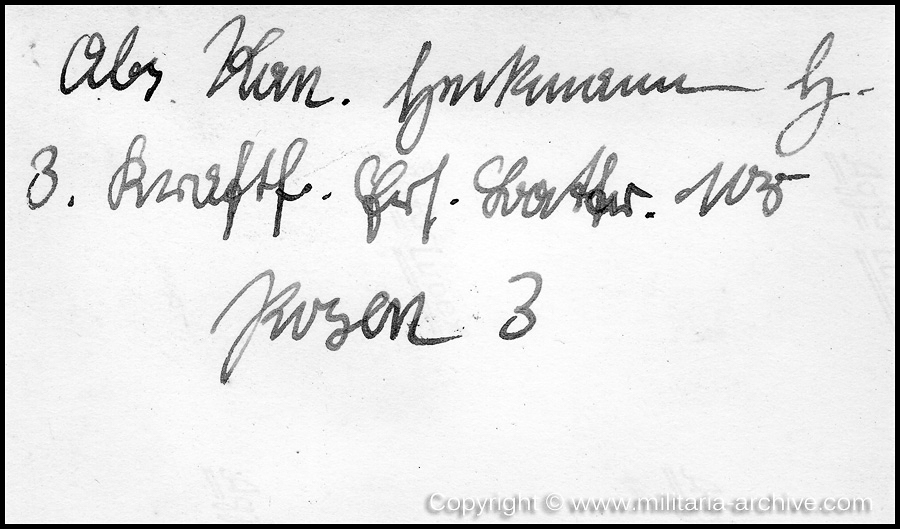 Abs. Kan. Herkmann H.
3. Kraftf. Ers. Battr. 105
Posen 3
Copyright © www.militaria-archive.com